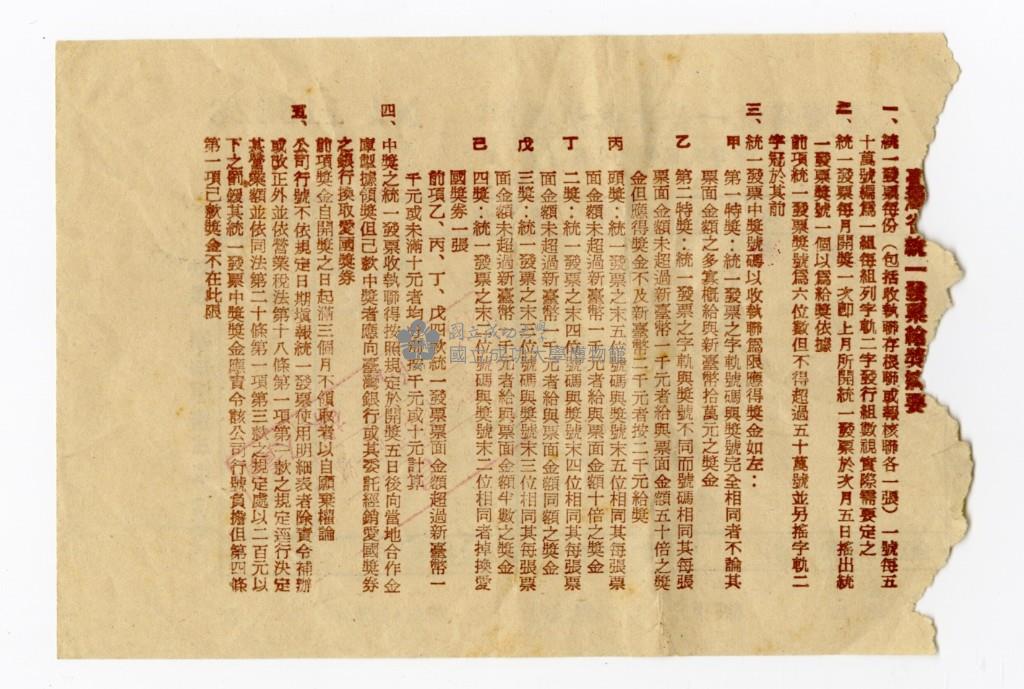 臺灣省統一發票給獎概要
一、統一發票每份（包括收執聯存根聯或報核聯各一張）一號每五
十萬號編為一組每組列字軌二字發行組數視實際需要定之
二、統一發票每月開獎一次卽上月所開統一發票於次月五日搖出統
一發票獎號一個以爲給獎依據
前項統一發票獎號爲六位數但不得超過五十萬號並另搖字軌二
字冠於其前
三、統一發票中獎號碼以收執聯爲限應得獎金如左：
甲　第一特獎：統一發票之字軌號碼與獎號完全相同者不論其
票面金額之多寡概給與新臺幣拾萬元之獎金
乙　第二特獎：統一發票之字軌與獎號不同而號碼相同其每張
票面金額未超過新臺幣一千元者給與票面金額五十倍之獎
金但應得獎金不及新臺幣二千元者按二千元給獎
丙　頭獎：統一發票之末五位號碼與獎號末五位相同其每張票
面金額未超過新臺幣一千元者給與票面金額十倍之獎金
丁　二獎：統一發票之末四位號碼與獎號末四位相同其每張票
面金額未超過新臺幣一千元者給與票面金額同額之獎金
戊　三獎：統一發票之末三位號碼與獎號末三位相同其每張票
面金額未超過新臺幣一千元者給與票面金額半數之獎金
己　四獎：統一發票之末二位號碼與獎號末二位相同者掉換愛
國獎券一張
前項乙、丙、丁、戊四款統一發票票面金額超過新臺幣一
千元或未滿十元者均按千元或十元計算
四、中獎之統一發票收執聯得按照規定於開獎五日後向當地合作金
庫掣據領獎但己款中獎者應向臺灣銀行或其委託經銷愛國獎券
之銀行換取愛國獎券
前項獎金自開獎之日起滿三個月不領取者以自願棄權論
五、公司行號不依規定日期塡報統一發票使用明細表者除責令補辦
或改正外並依營業稅法第十八條第一項第二款之規定逕行決定
其營業額並依同法第二十條第一項第三款之規定處以二百元以
下之罰鍰其統一發票中獎獎金應責令該公司行號負擔但第四條
第一項己款獎金不在此限
國立成功大學
國立成功大學博物館